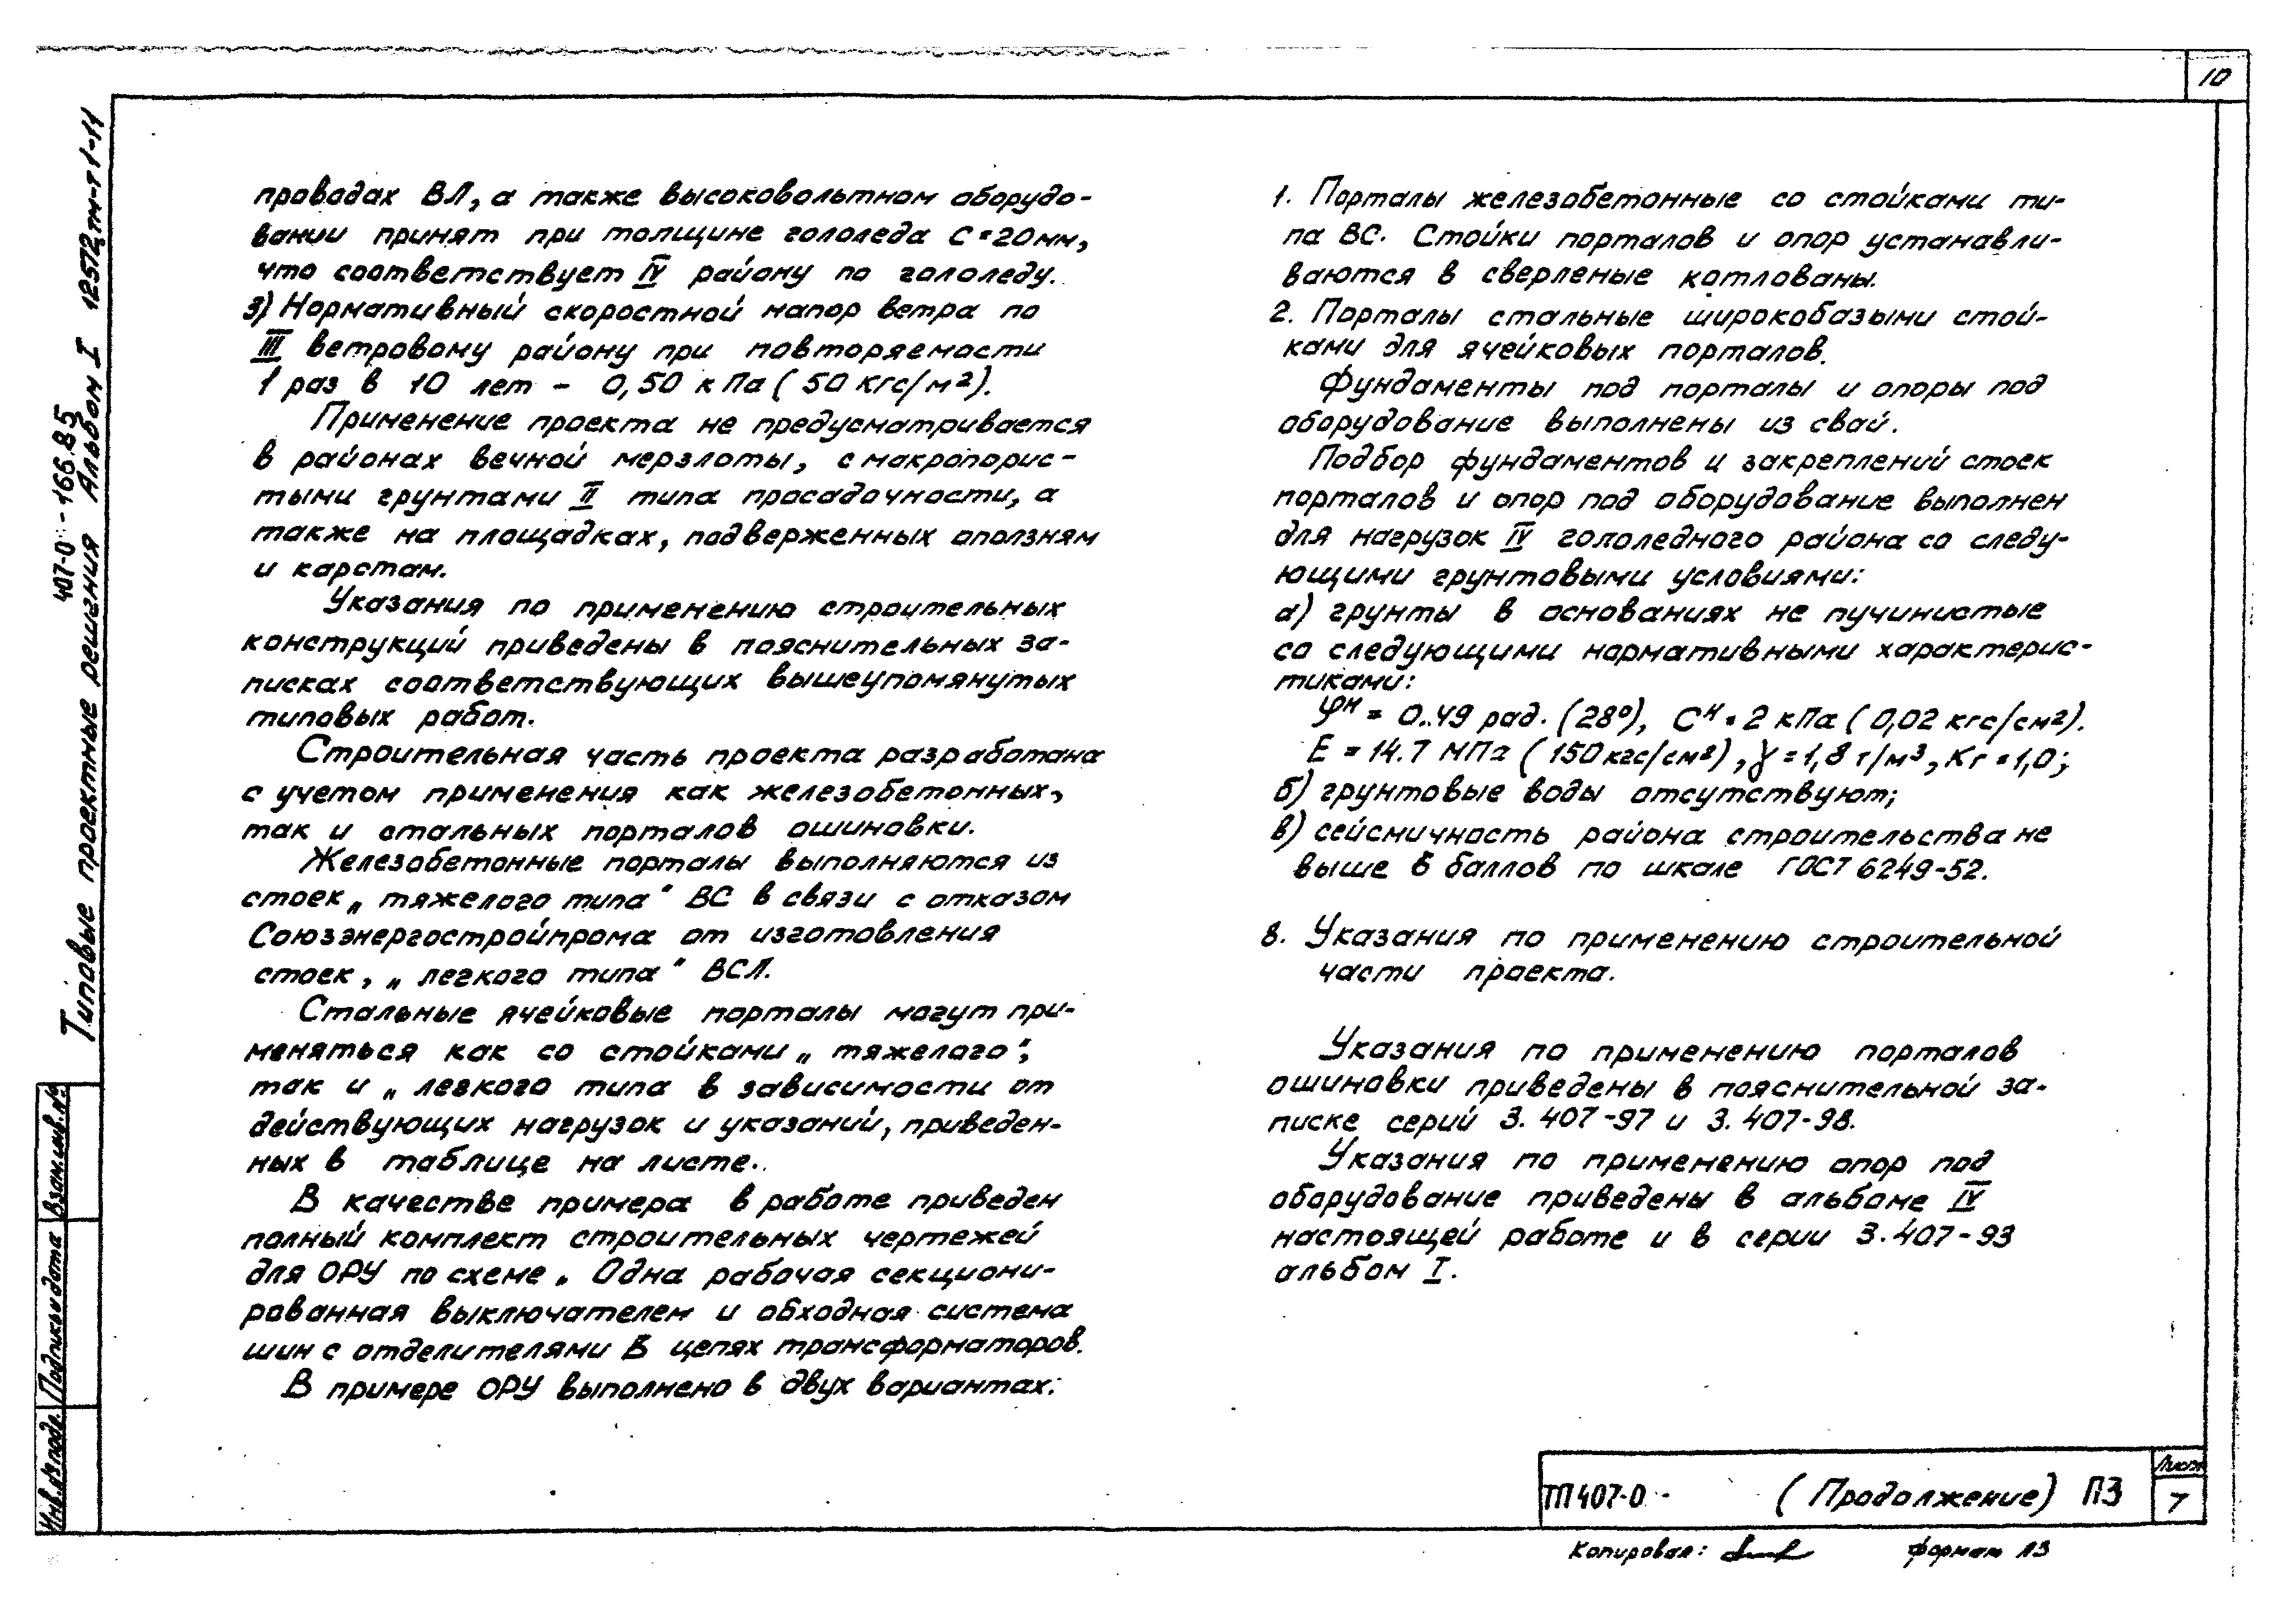 10
проводах ВЛ, а также высоковольтном оборудо-
вании принят при толщине гололеда C=20мм,
что соответствует IV району по гололеду.
з) Нормативный скоростной напор ветра по
III ветровому району при повторяемости
1 раз в 10 лет - 0,50 кПа (50 кгс/м²).
Применение проекта не предусматривается
в районах вечной мерзлоты, с макропорис-
тыми грунтами II типа просадочности, а
также на площадках, подверженных оползням
и карстам.
Указания по применению строительных
конструкций приведены в пояснительных за-
писках соответствующих вышеупомянутых
типовых работ.
Строительная часть проекта разработана
с учетом применения как железобетонных,
так и стальных порталов ошиновки.
Железобетонные порталы выполняются из
стоек „тяжелого типа" ВС в связи с отказом
Союзэнергостройпрома от изготовления
стоек, „легкого типа" ВСЛ.
Стальные ячейковые порталы могут при-
меняться как со стойками „тяжелого",
так и „легкого типа в зависимости от
действующих нагрузок и указаний, приведен-
ных в таблице на листе.
В качестве примера в работе приведен
полный комплект строительных чертежей
для ОРУ по схеме „Одна рабочая секциони-
рованная выключателем и обходная система
шин с отделителями в цепях трансформаторов.
В примере ОРУ выполнено в двух вариантах:
1. Порталы железобетонные со стойками ти-
па ВС. Стойки порталов и опор устанавли-
ваются в сверленые котлованы.
2. Порталы стальные широкобазыми стой-
ками для ячейковых порталов.
Фундаменты под порталы и опоры под
оборудование выполнены из свай.
Подбор фундаментов и закреплений стоек
порталов и опор под оборудование выполнен
для нагрузок IV гололедного района со следу-
ющими грунтовыми условиями:
а) грунты в основаниях не пучинистые
со следующими нормативными характерис-
тиками:
φᴴ = 0.49 рад. (28°), Cᴴ = 2 кПа (0,02 кгс/см²).
E = 14.7 МПа (150 кгс/см²), γ = 1,8 т/м³, Кг = 1,0;
б) грунтовые воды отсутствуют;
в) сейсмичность района строительства не
выше 6 баллов по шкале ГОСТ 6249-52.
8. Указания по применению строительной
части проекта.
Указания по применению порталов
ошиновки приведены в пояснительной за-
писке серий 3.407-97 и 3.407-98.
Указания по применению опор под
оборудование приведены в альбоме IV
настоящей работе и в серии 3.407-93
альбом I.
407-0-166.85
Типовые проектные решения Альбом I 12572тм-т1-11
Взам.инв.№
Подпись и дата
Инв.№подл.
ТП 407-0 - (Продолжение) ПЗ
Лист
7
Копировал:
Формат А3